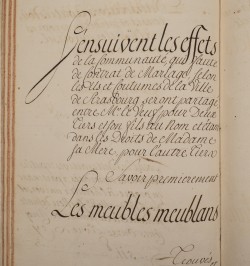 S'ensuivent les effets
de la Communauté, qui faute
de Contrat de Mariage selon
les Us et Coutumes de la Ville
de Strasbourg seront partagé
entre Mr le Veuf pour Deux
tiers et son fils au Nom et comme
dans les Droits de Madame
sa Mere, pour l'autre tiers
Savoir premierement
Les meubles meublans
Trouvés